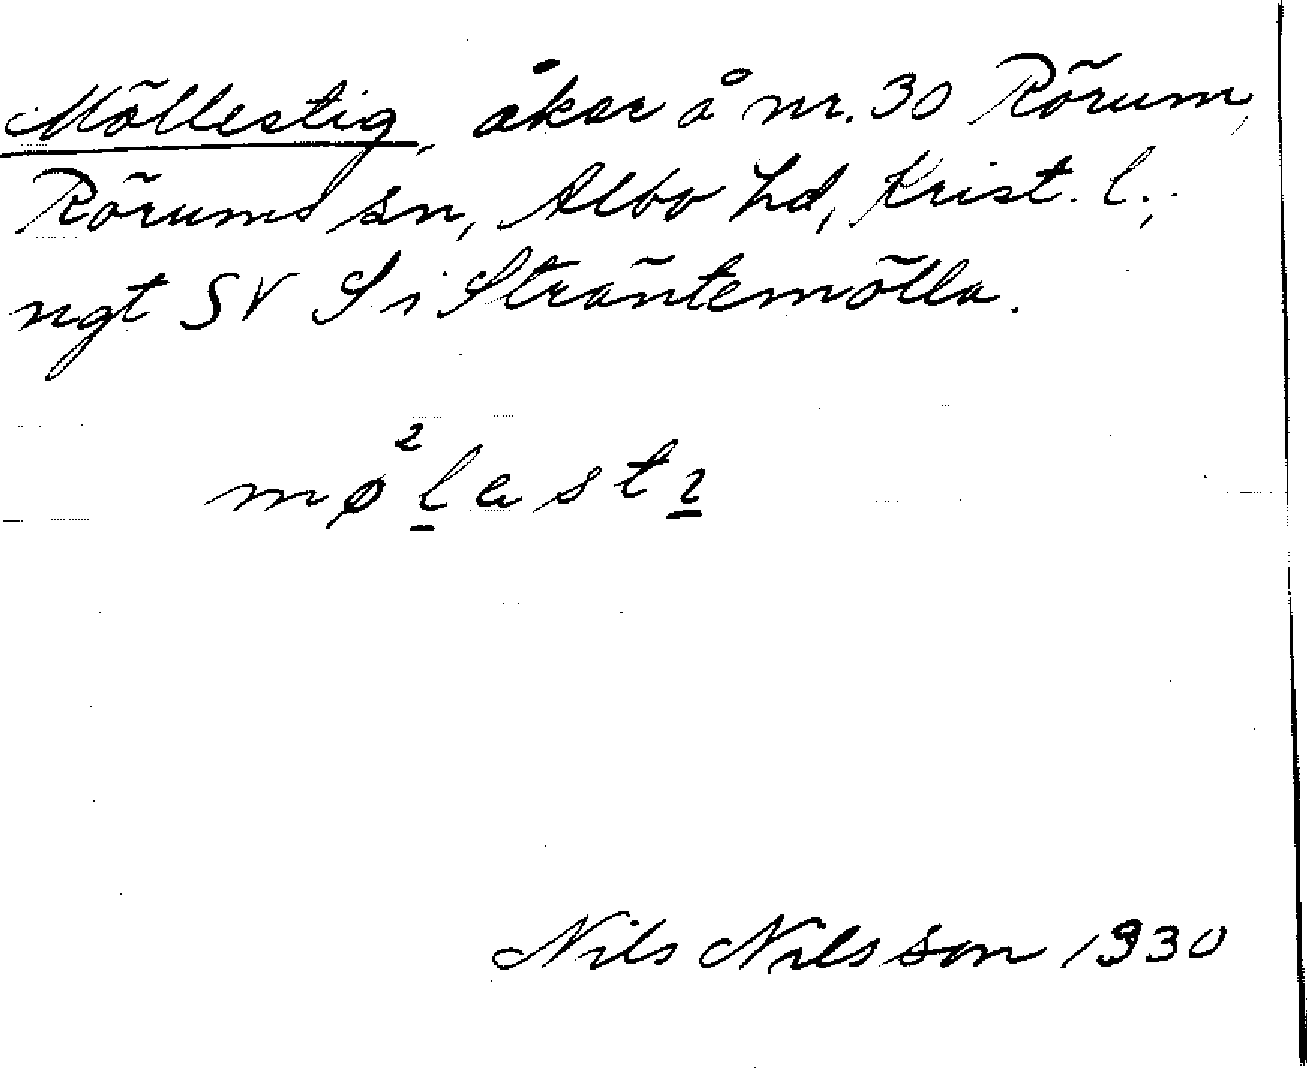 Möllestig, åker å nr. 30 Rörum,
Rörums sn, Albo hd, Krist. l.,
ngt SV S i Sträntemölla.
mø²lasti
Nils Nilsson 1930